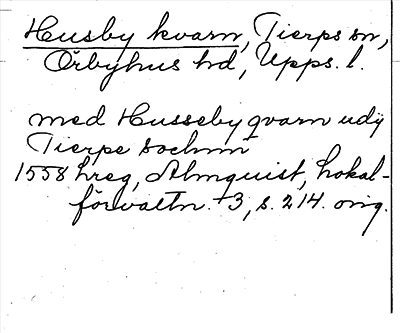 Husby kvarn, Tierps sn,
Örbyhus hd, Upps. l.
med Husseby qvarn udij
Tierpe sochnn
1558 hreg, Almquist, Lokal-
förvaltn. 3, s. 214. orig.